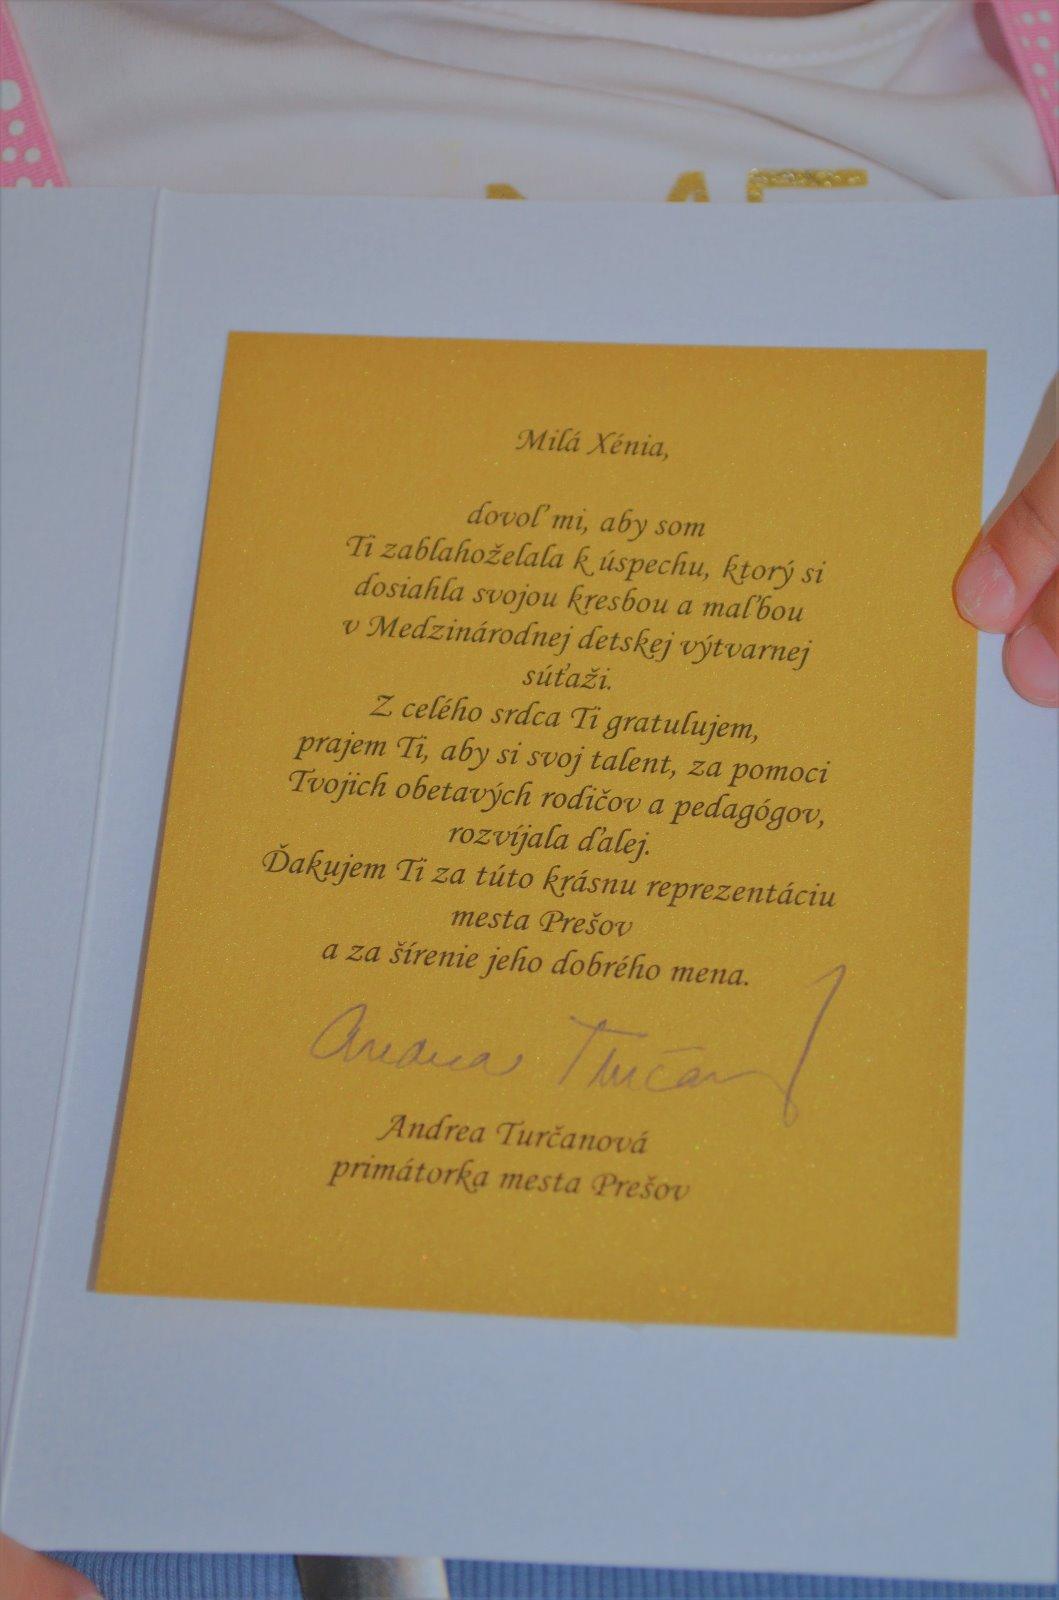 Milá Xénia,
dovoľ mi, aby som
Ti zablahoželala k úspechu, ktorý si
dosiahla svojou kresbou a maľbou
v Medzinárodnej detskej výtvarnej
súťaži.
Z celého srdca Ti gratulujem,
prajem Ti, aby si svoj talent, za pomoci
Tvojich obetavých rodičov a pedagógov,
rozvíjala ďalej.
Ďakujem Ti za túto krásnu reprezentáciu
mesta Prešov
a za šírenie jeho dobrého mena.
Andrea Turčanová
primátorka mesta Prešov